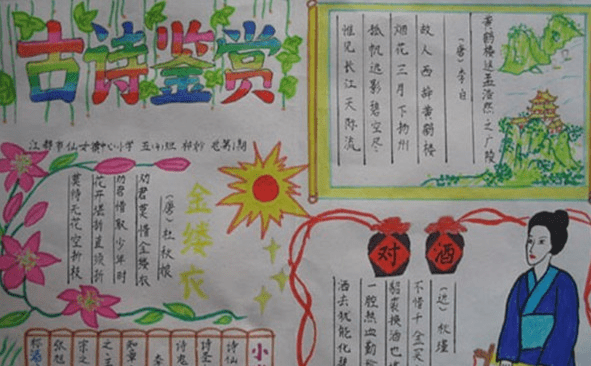 古诗鉴赏
黄鹤楼送孟浩然之广陵
（唐）李白
故人西辞黄鹤楼
烟花三月下扬州
孤帆远影碧空尽
惟见长江天际流
金缕衣
（唐）杜秋娘
劝君莫惜金缕衣
劝君惜取少年时
花开堪折直须折
莫待无花空折枝
对酒
（近）秋瑾
不惜千金买
貂裘换酒也
一腔热血勤
洒去犹能化
小
诗仙
诗圣
诗鬼